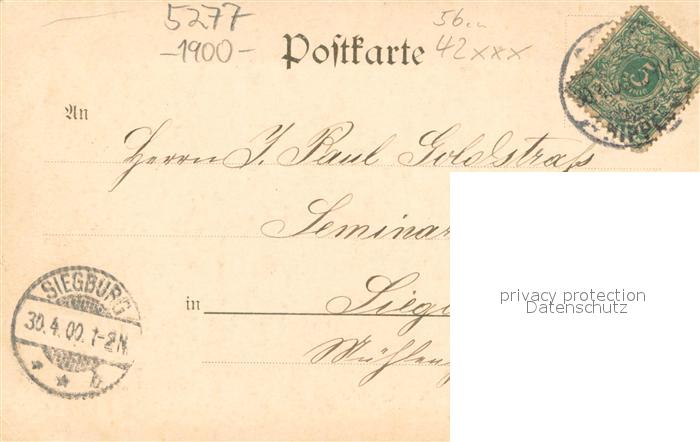 5277
-1900-
56
42xxx
Postkarte
An
Herrn J. Paul Goldstraß
Seminar
in Sieg
Mühlen
SIEGBURG
30.4.00.1-2N.
* * b
5
privacy protection
Datenschutz